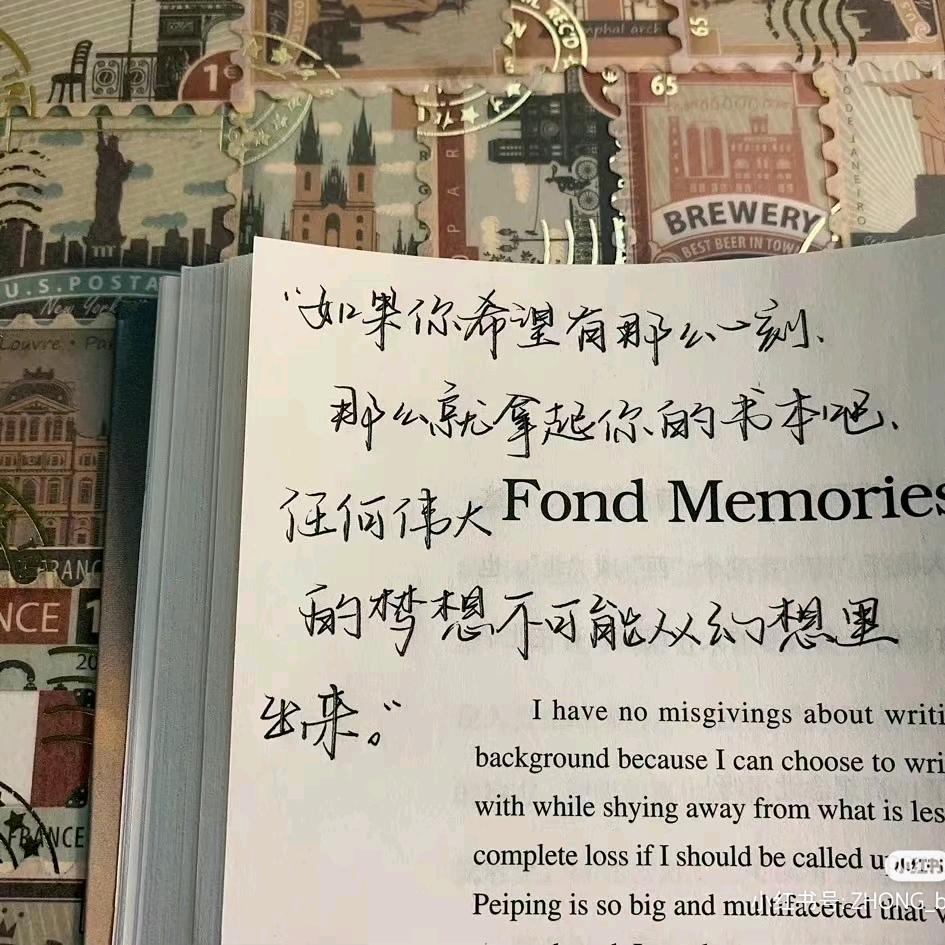 1€
RECD
mphal arch
65
65
BREWERY
BEST BEER IN TOW
O DE JANEIRO
PAR
U.S.POSTA
New York
Louvre • Pa
FRANC
NCE 1
20
FRANCE
“如果你希望有那么一刻、
那么就拿起你的书本吧、
任何伟大
Fond Memories
的梦想不可能从幻想里
出来。”
I have no misgivings about writi
background because I can choose to wri
with while shying away from what is les
complete loss if I should be called u
Peiping is so big and multifaceted that
小红书
小红书号: ZHONG_b